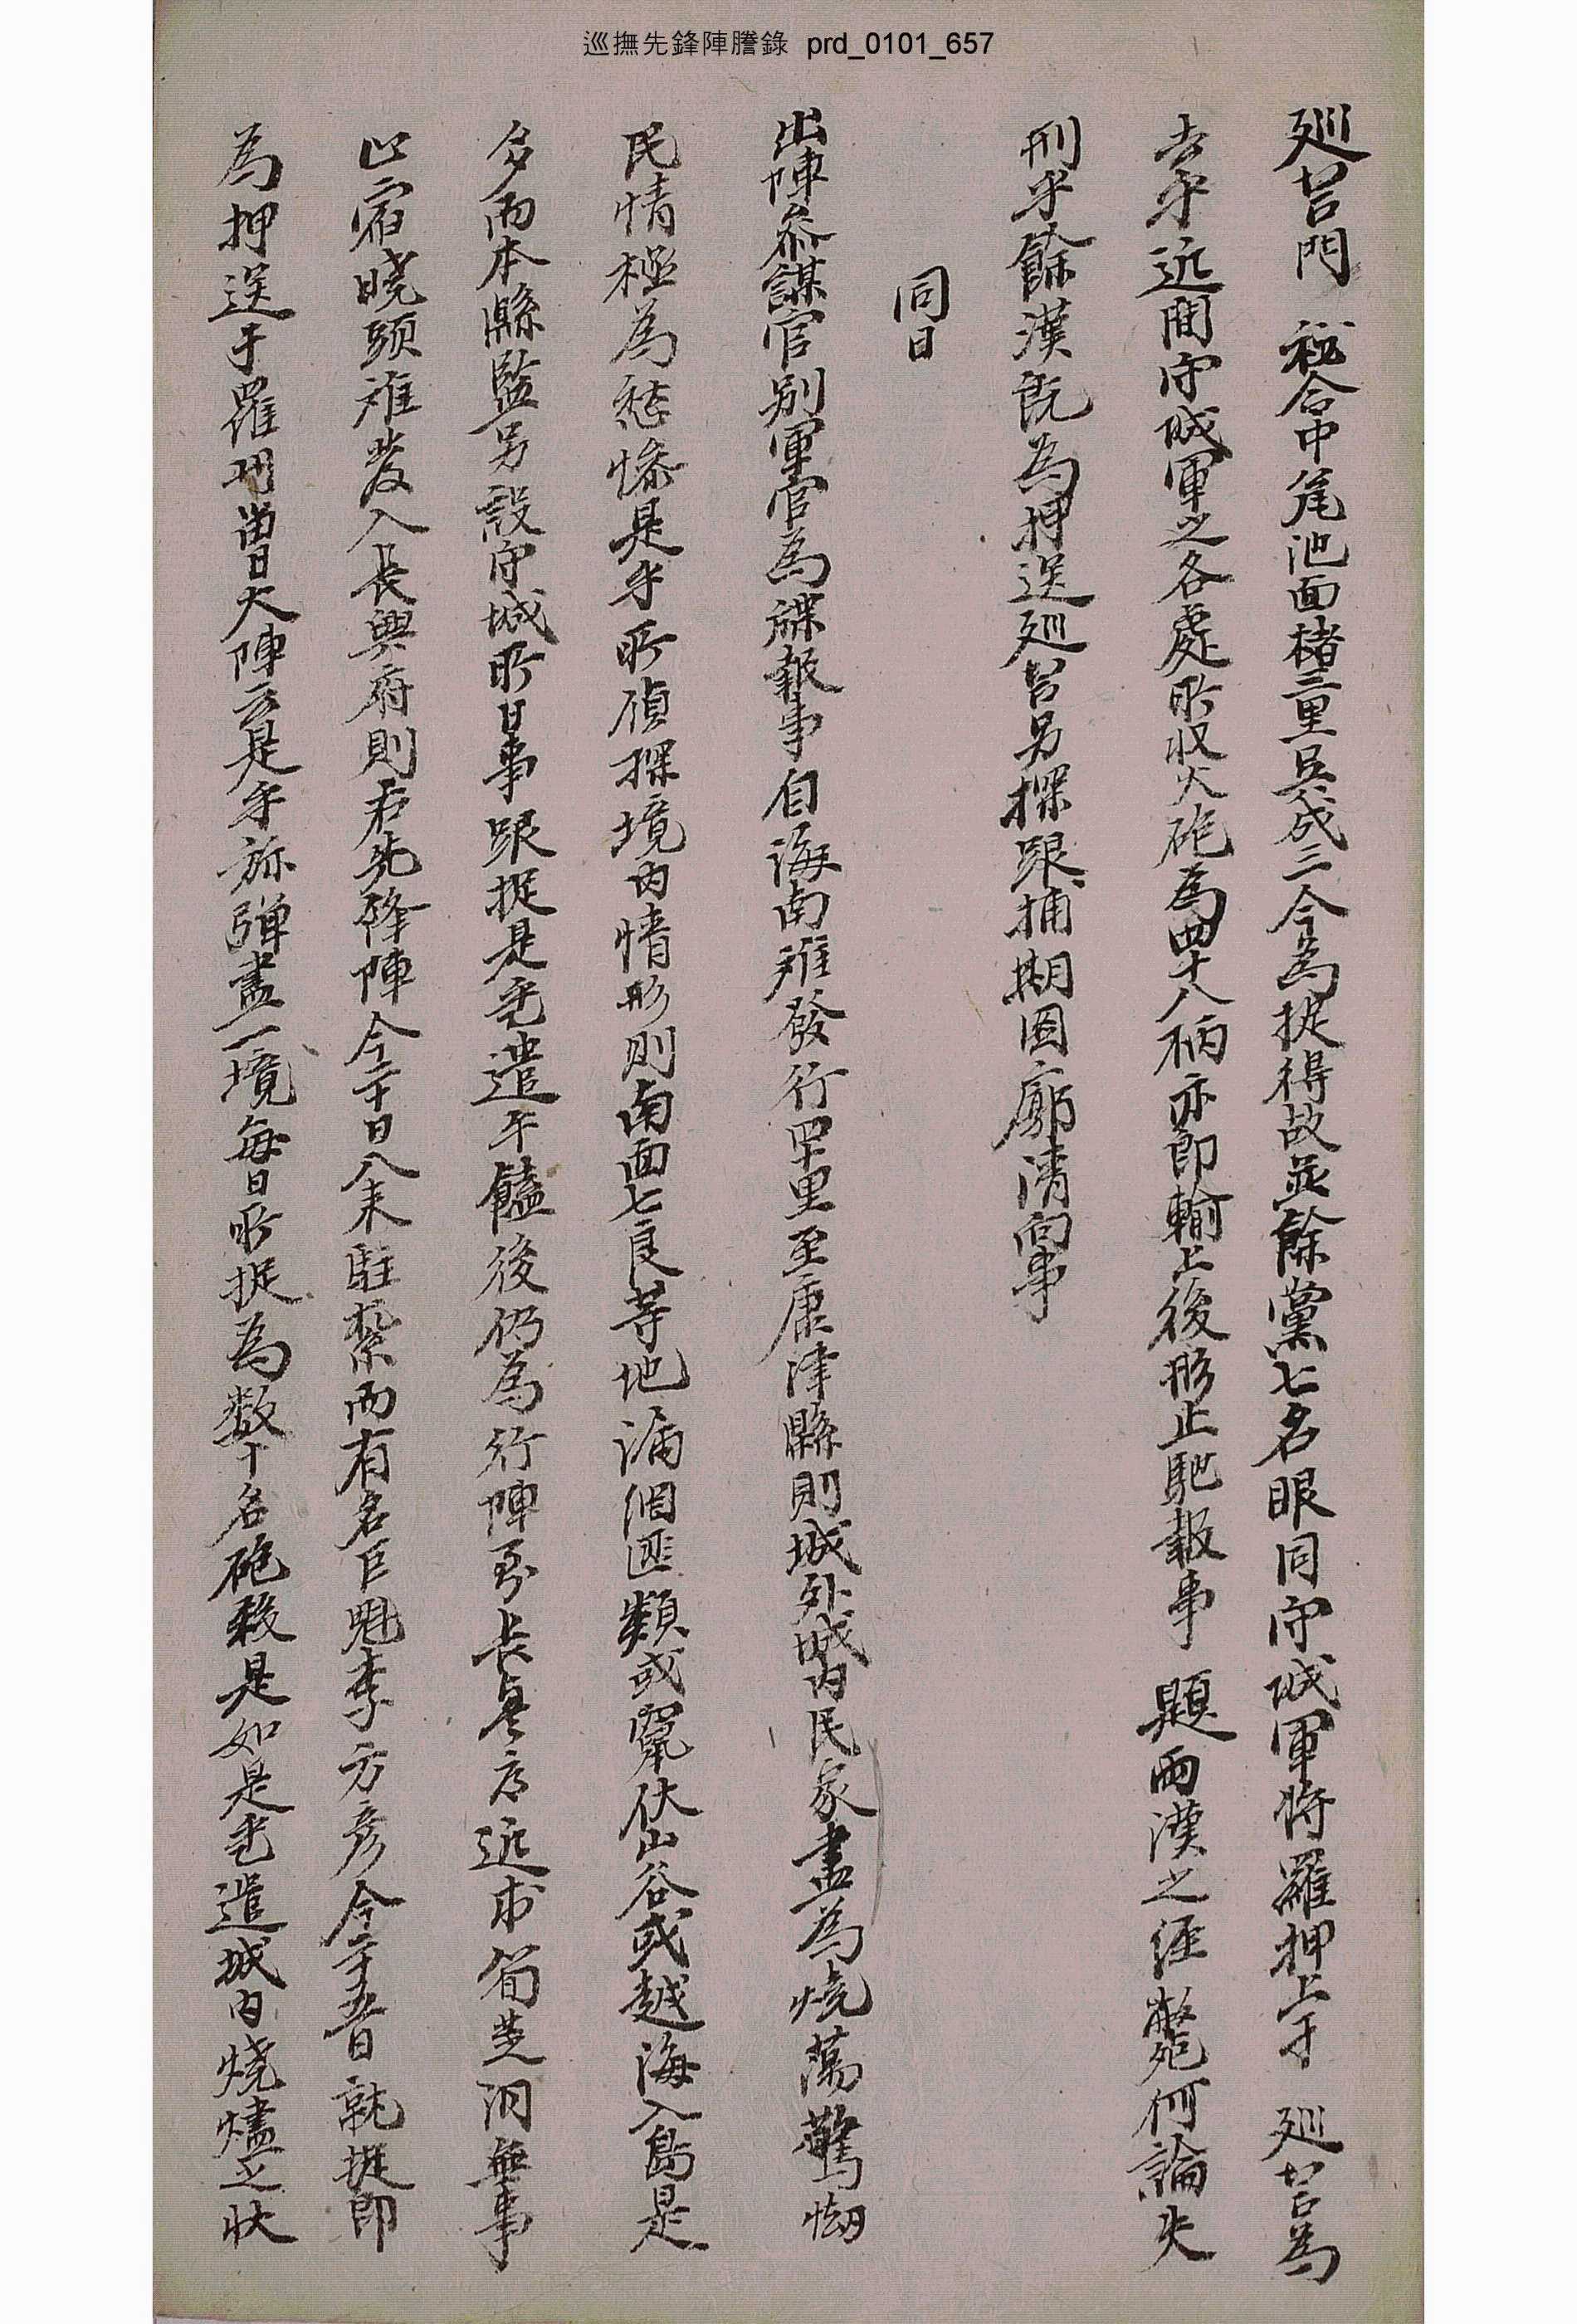 巡撫先鋒陣謄錄 prd_0101_657
廵營門 秘合中尾池面楮二里吳成三今爲捉得故並餘黨七名眼同守城軍將羅押上于 廵營爲
去乎近間守城軍之各處所收火砲爲四十八柄亦卽輸上後形止馳報事 題兩漢之徑斃何論失
刑乎餘漢旣爲押送廵營另探跟捕期圖廓淸向事
同日
出陣叅謀官別軍官爲牒報事自海南離發行四十里至康津縣則城外城內民家盡爲燒蕩驚㤼
民情極爲愁慘是乎所偵探境內情形則南面七良等地漏網匪類或竄伏山谷或越海入島是
多而本縣監另設守城所日事跟捉是乎遣午饁後仍爲行陣至長興府近市筍芝洞無事
止宿曉頭離發入長興府則右先鋒陣今二十日入來駐紮而有名巨魁李方彦今二十五日就捉卽
爲押送于羅州曾日大陣云是乎旀彈盡一境每日所捉爲數十名砲殺是如是乎遣城內燒燼之狀